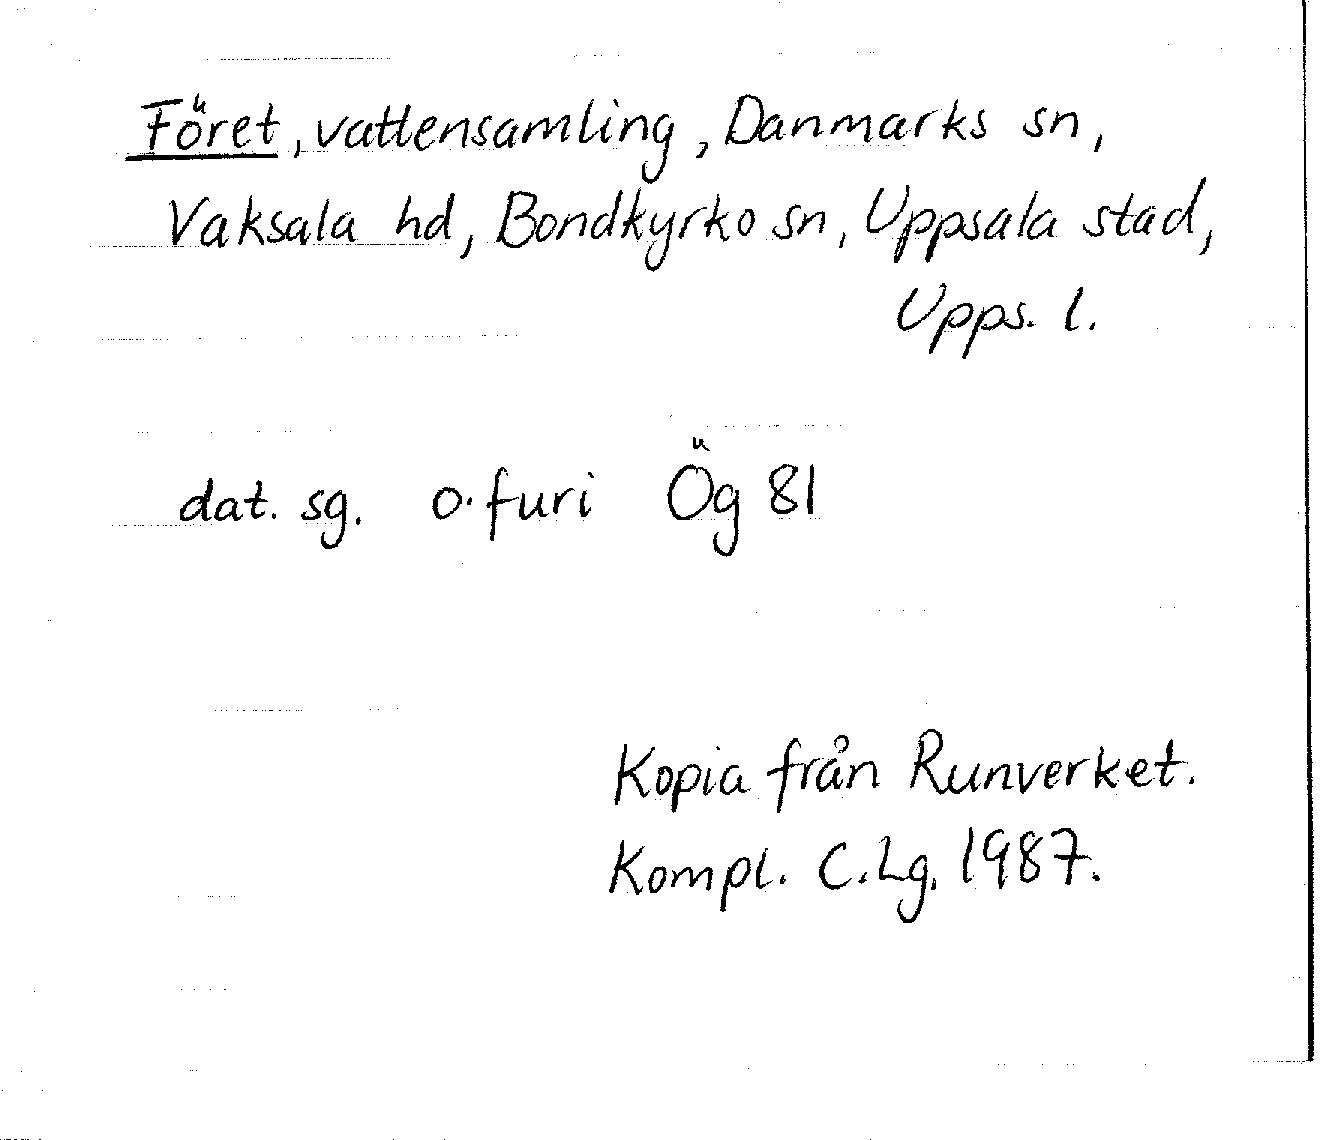 Föret, vattensamling, Danmarks sn,
Vaksala hd, Bondkyrko sn, Uppsala stad,
Upps. l.
dat. sg. o·furi Ög 81
Kopia från Runverket.
Kompl. C.Lg. 1987.